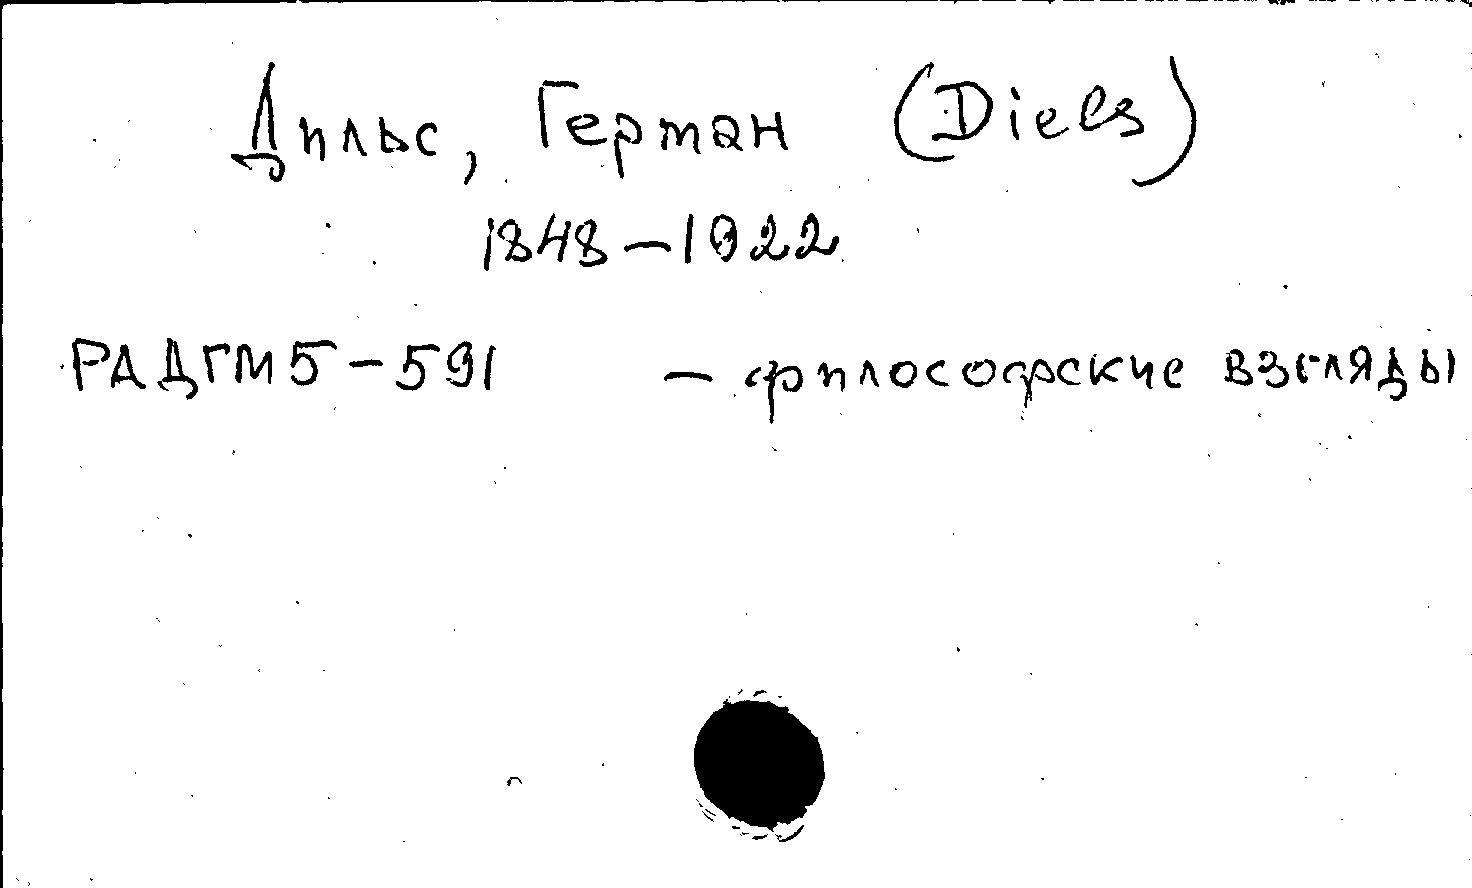 Дильс, Герман (Diels)
1848-1922
РАДГМ5-591 - философские взгляды